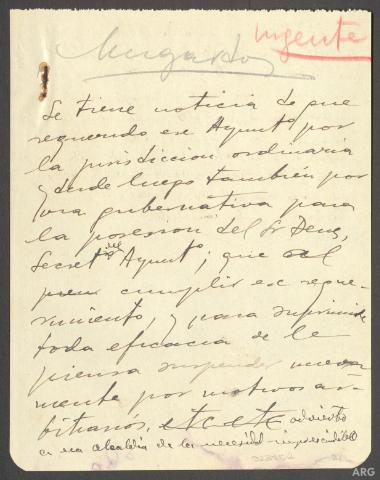 Mugardos
Urgente
Se tiene noticia de que
requerido ese Ayuntº por
la jurisdiccion ordinaria
y desde luego también por
via gubernativa para
la posesion del Sr Deus,
Secretº del Ayuntº; que al
cumplir ese reque-
rimiento, y para suprimirle
toda eficacia se le
piensa suspender nueva-
mente por motivos ar-
bitrarios, advierto
a esa alcaldia de la necesidad imprescindible
ARG